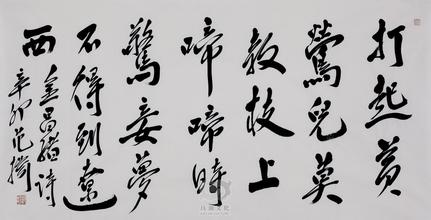 打起黄
鶯兒莫
教枝上
啼啼时
驚妾夢
不得到遼
西
金昌緒詩
辛卯范